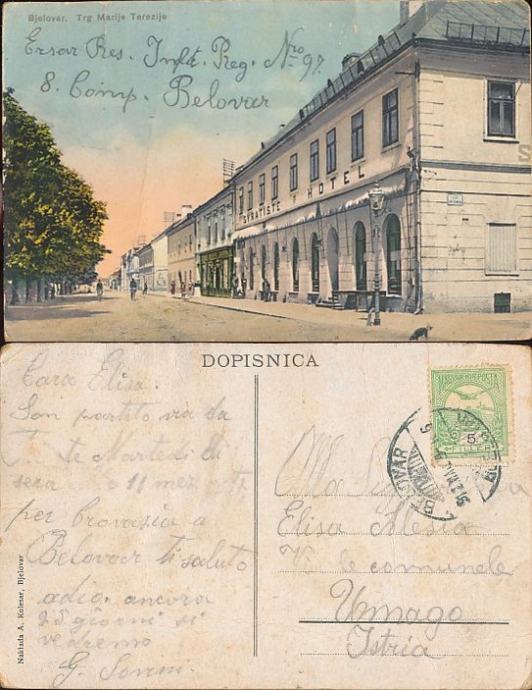 Bjelovar. Trg Marije Terezije
Ersar Res. Inft. Reg. Nro 97.
8. Comp. Belovar
SVRATIŠTE HOTEL
DOPISNICA
Cara Elisa.
Son partito via da
Te Martedi di
sera 11
per Crovazia a
Belovar ti saluto
adio. ancora
25 giorni si
vedremo
G.
Naklada A. Kolesar, Bjelovar
MAGYAR KIR. POSTA
5
BELOVAR
Alla
Elisa
V de comunele
Umago
Istria